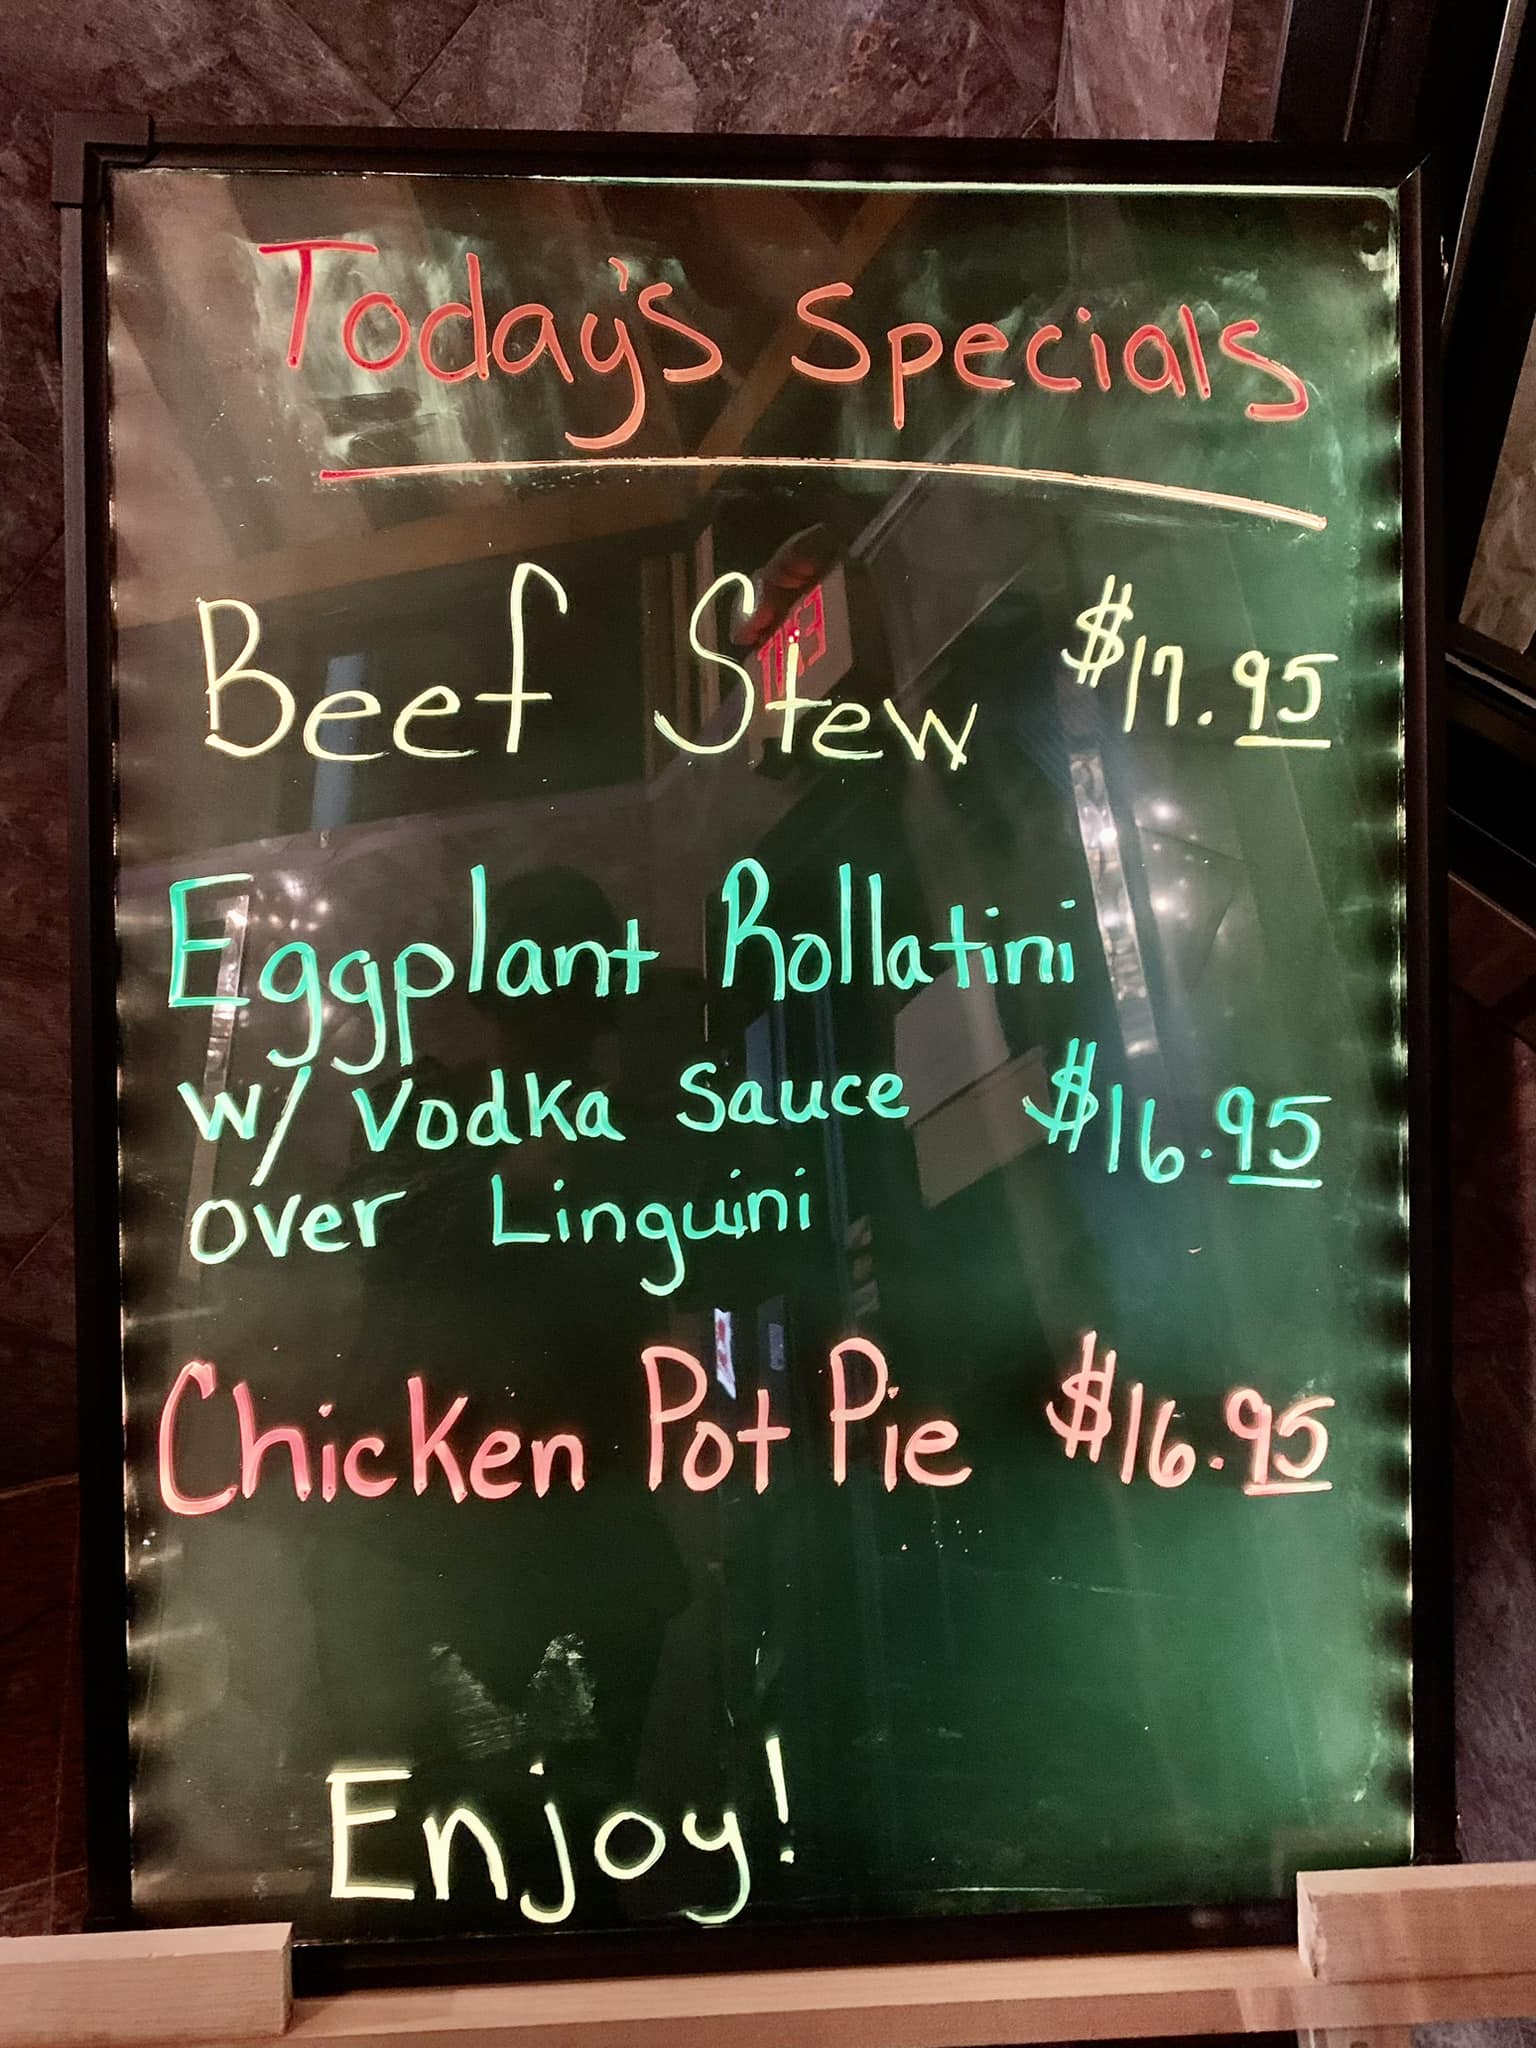 Today's Specials
Beef Stew $17.95
Eggplant Rollatini
w/ Vodka Sauce $16.95
over Linguini
Chicken Pot Pie $16.95
Enjoy!
EXIT